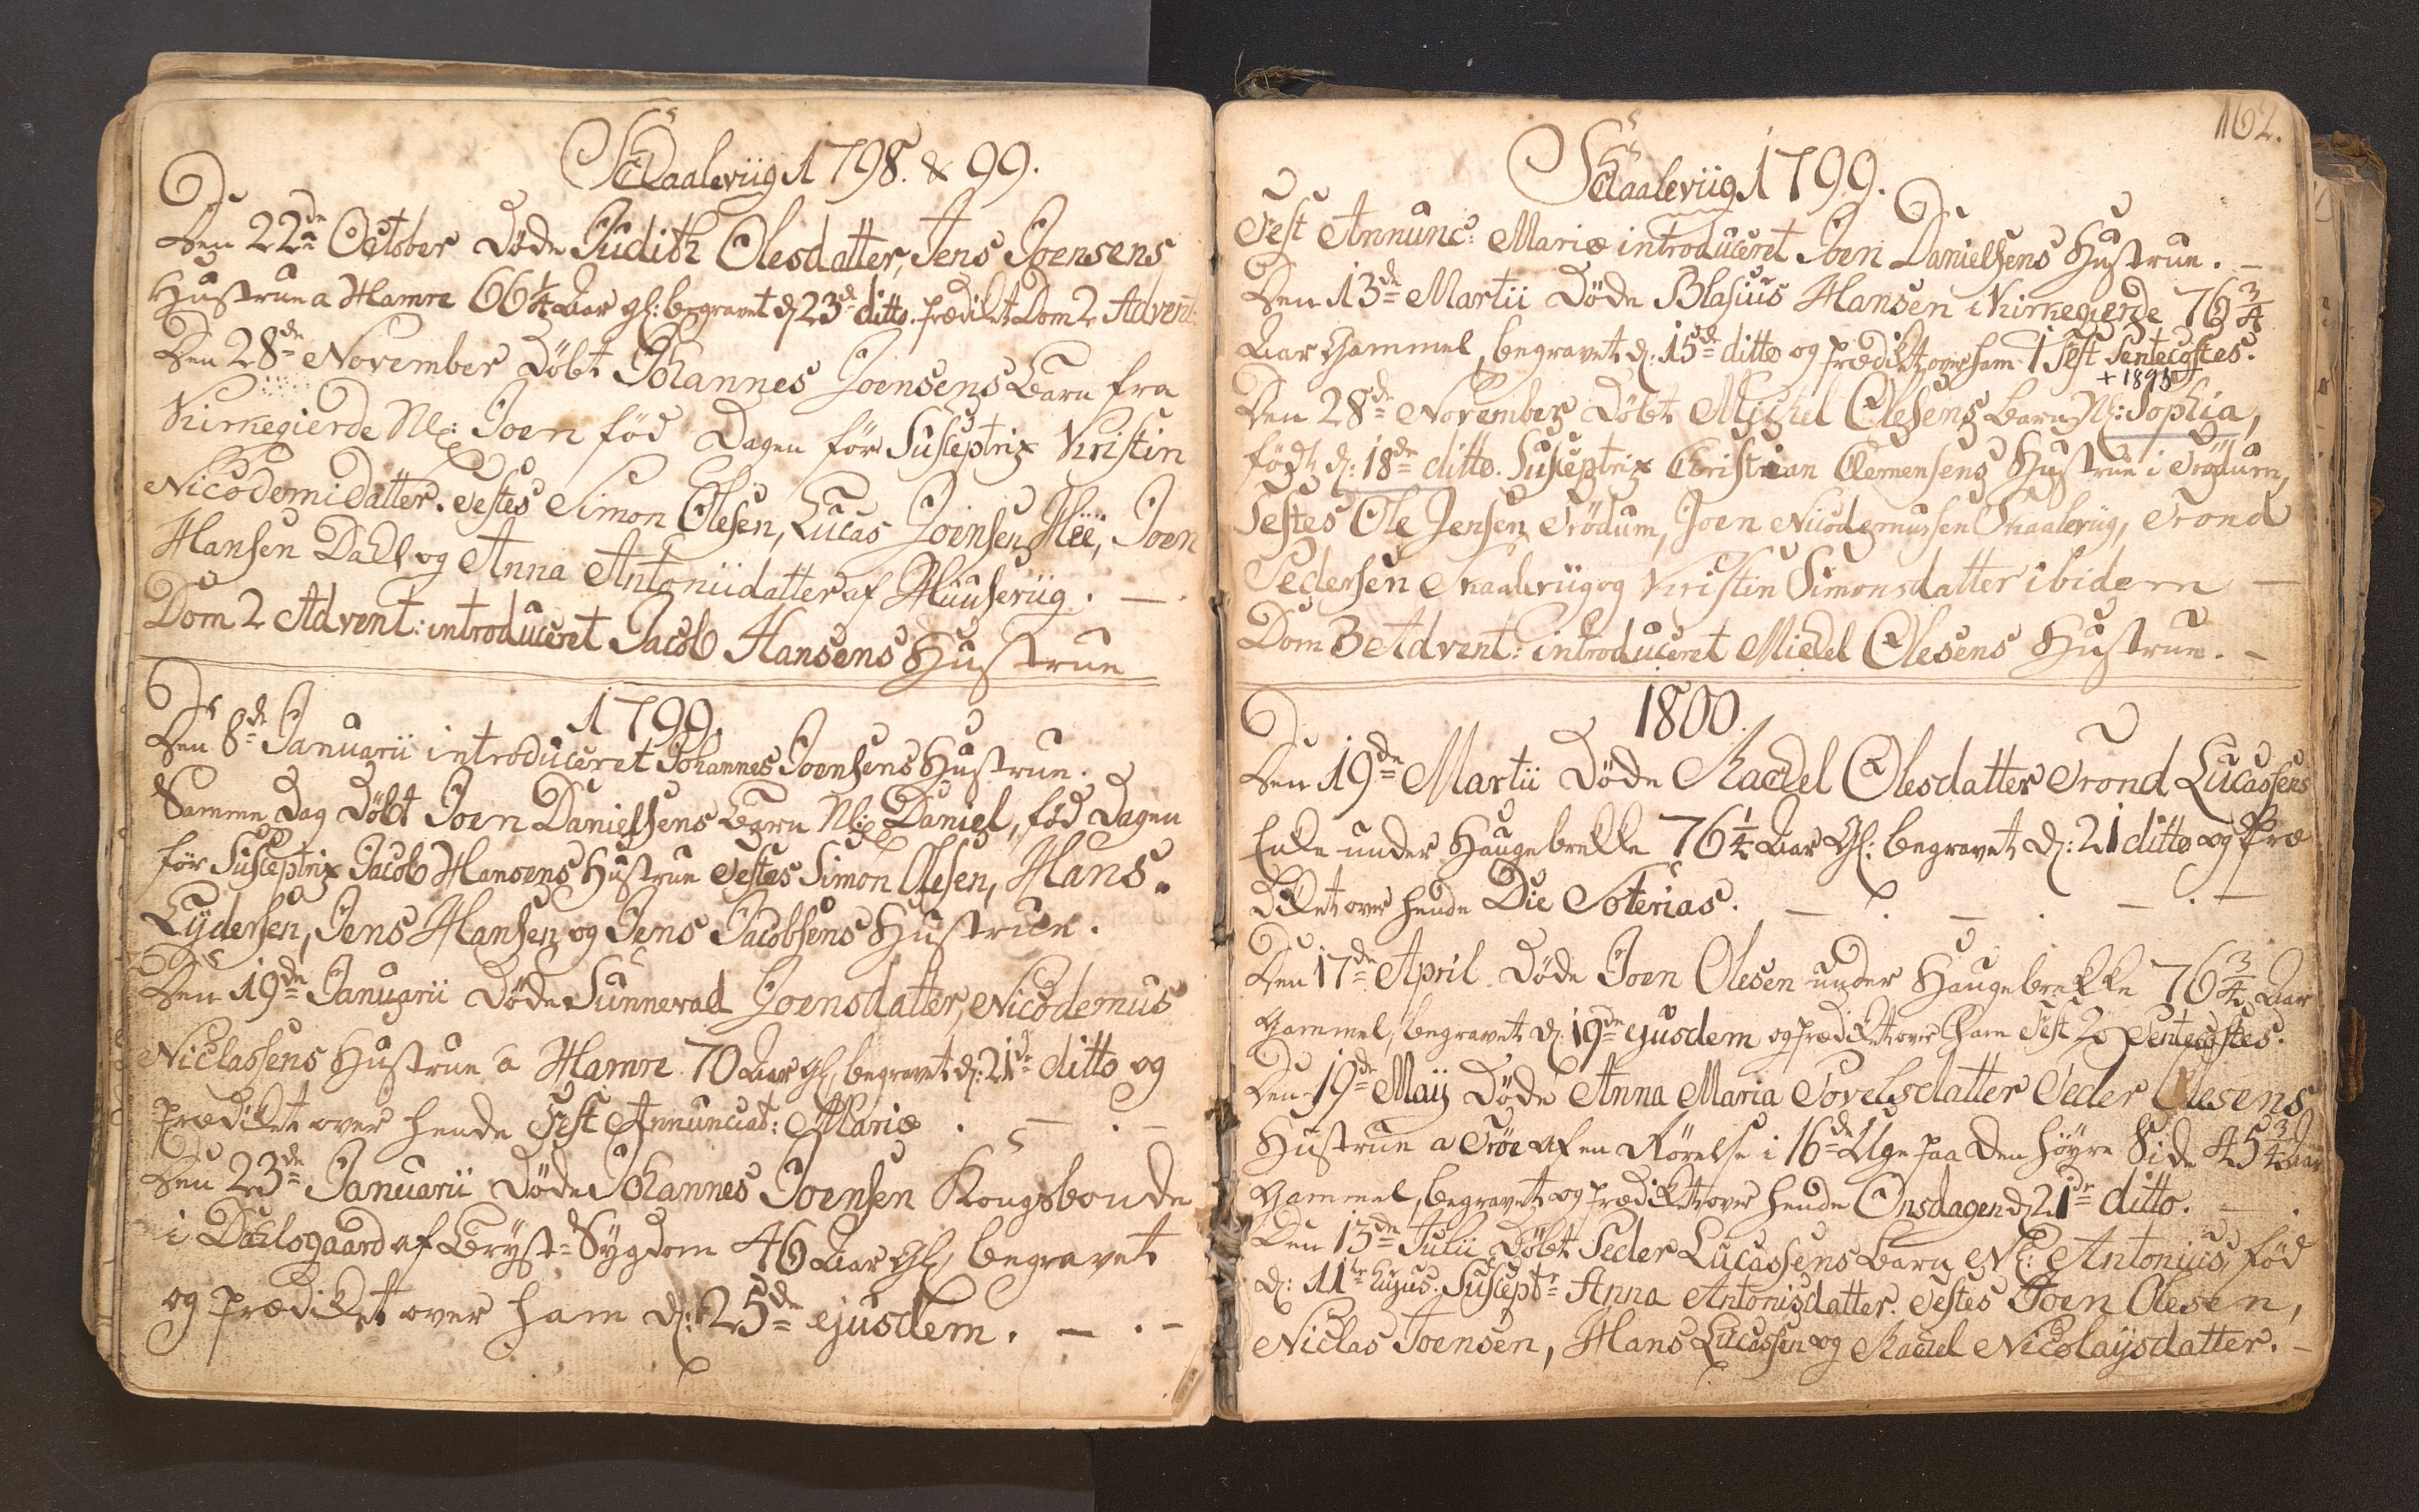 Skaalevüg 1798. & 99.
Den 22de October Döde Judith Olesdatter, Jens Joensens
Hustrue a Hamre 66 1/4 Aar gl: begravet d 23de ditto. prædiket Dom 2 Advent:
Den 28de November Döbt Johannes Joensens Barn fra
Kirkegierde Nl: Joen fød Dagen för Susceptrix Kristin
Nicodemidatter. Testes Simon Olesen, Lucas Joensen, Joen
Hansen Dahl og Anna Antoniidatter af Huuserüg. —
Dom 2 Advent: introduceret Jacob Hansens Hustrue
1799.
Den 8de Januarii introduceret Johannes Joensens Hustrue.
Samme Dag Döbt Joen Danielsens Barn Nl: Daniel, fød Dagen
för Susceptrix Jacob Hansens Hustrue Testes Simon Olesen, Hans
Lÿdersen, Jens Hansen og Jens Jacobsens Hustrue.
Den 19de Januarii Döde Sunnevad Joensdatter, Nicodemus
Niclassens Hustrue a Hamre 70 Aar gl, begravet d: 21de ditto og
prædiket over hende Fest Annunciat: Mariæ . — . —
Den 23de Januarii Döde Johannes Joensen Kongsbonde
i Dahlsgaard af Bryst=Sygdom 46 Aar Gl, begravet
og prædiket over ham d: 25de ejusdem. — . —
162.
Skaalevüg 1799.
Fest Annunc: Mariæ introduceret Joen Danielsens Hustrue. —
Den 13de Martii Döde Blasius Hansen i Kirkegierde 76 3/4
Aar Gammel, begravet d: 15de ditto og prædiket over ham 1 Fest Pentecostes.
+ 1895
Den 28de November Döbt Michel Olesens Barn Nl: Sophia,
född d: 18de ditto. Susceptrix Christian Clemensens Hustrue i Trödum,
Testes Ole Jensen Trödum, Joen Nicodemussen Skaalevüg, Trond
Pedersen Skaalevüg og Kristin Simonsdatter ibidem —
Dom 3 Advent: introduceret Michel Olesens Hustrue. —
1800.
Den 19de Martii Döde Rachel Olesdatter Trond Lucassens
Enke under Haugebrekke 76 1/4 Aar Gl: begravet d: 21 ditto og Præ
diket over hende Die Soterias. — . — . — . —
Den 17de April Döde Joen Olesen under Haugebrekke 76 3/4 Aar
Gammel, begravet d: 19de ejusdem og prædiket over ham Fest 2 Pentecostes.
Den 19de Maij Döde Anna Maria Povelsdatter Peder Olesens
Hustrue a Tröe af en Rörelse i 16de Uge paa den höyre Side 45 3/4 Aar
Gammel, begravet og prædiket over hende Onsdagen d 21de ditto. — .
Den 13de Julii Döbt Peder Lucassens Barn Nl: Antonius, fød
d: 11te hujus. Suscept: Anna Antonisdatter. Testes Joen Olesen,
Niclas Joensen, Hans Lucassen og Rachel Nicolaÿsdatter. —